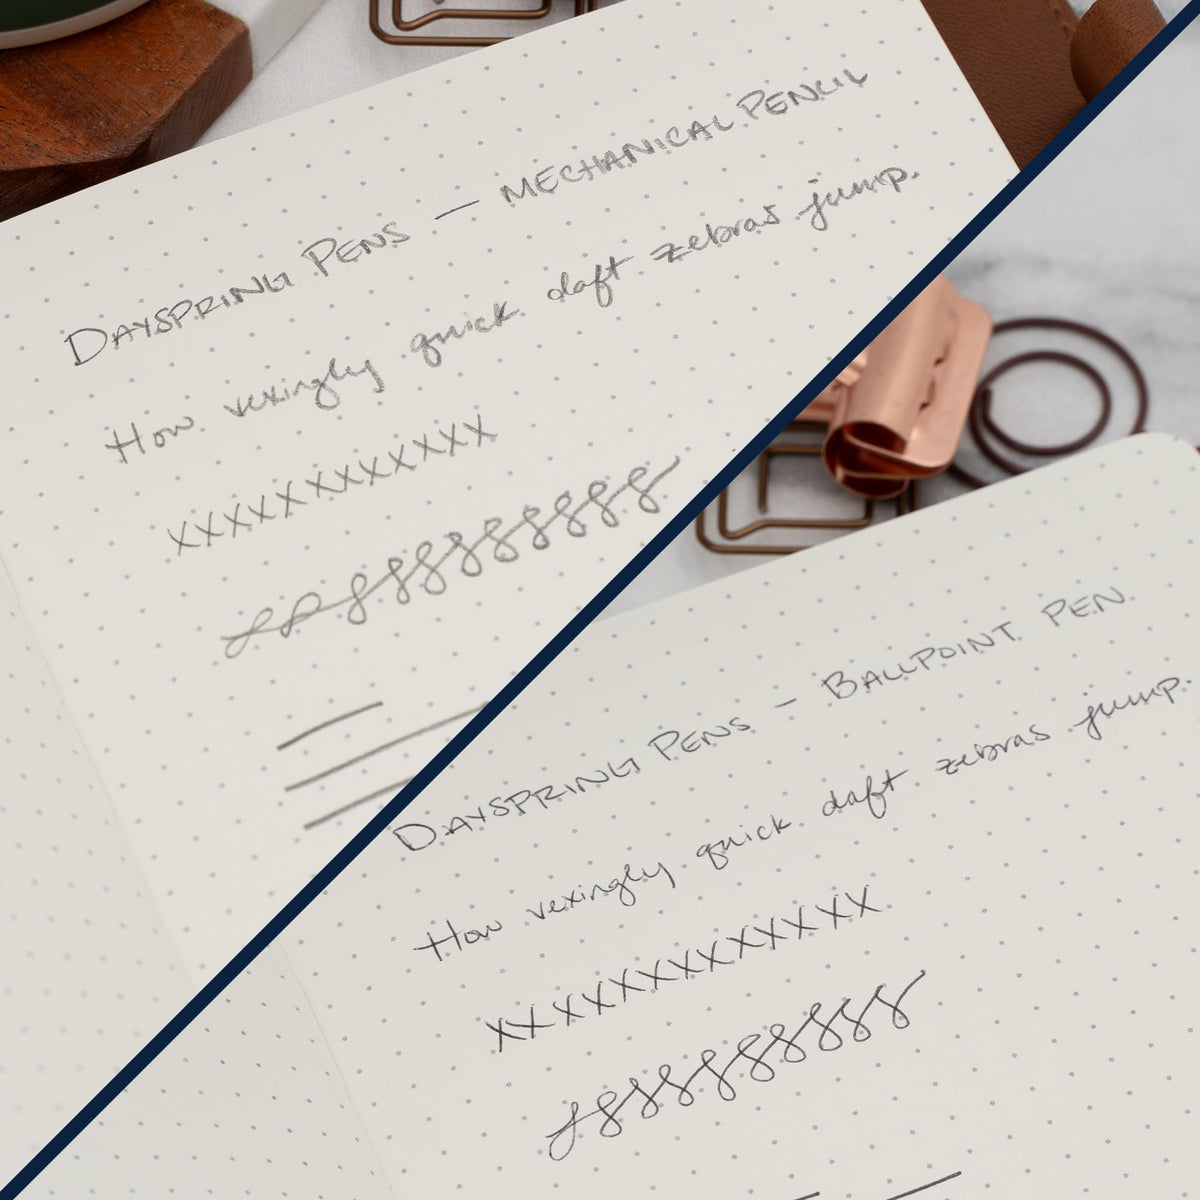 DAYSPRING PENS — MECHANICAL PENCIL
How vexingly quick daft zebras jump.
XXXXXXXXXXX
DAYSPRING PENS - BALLPOINT PEN
How vexingly quick daft zebras jump.
XXXXXXXXXXX